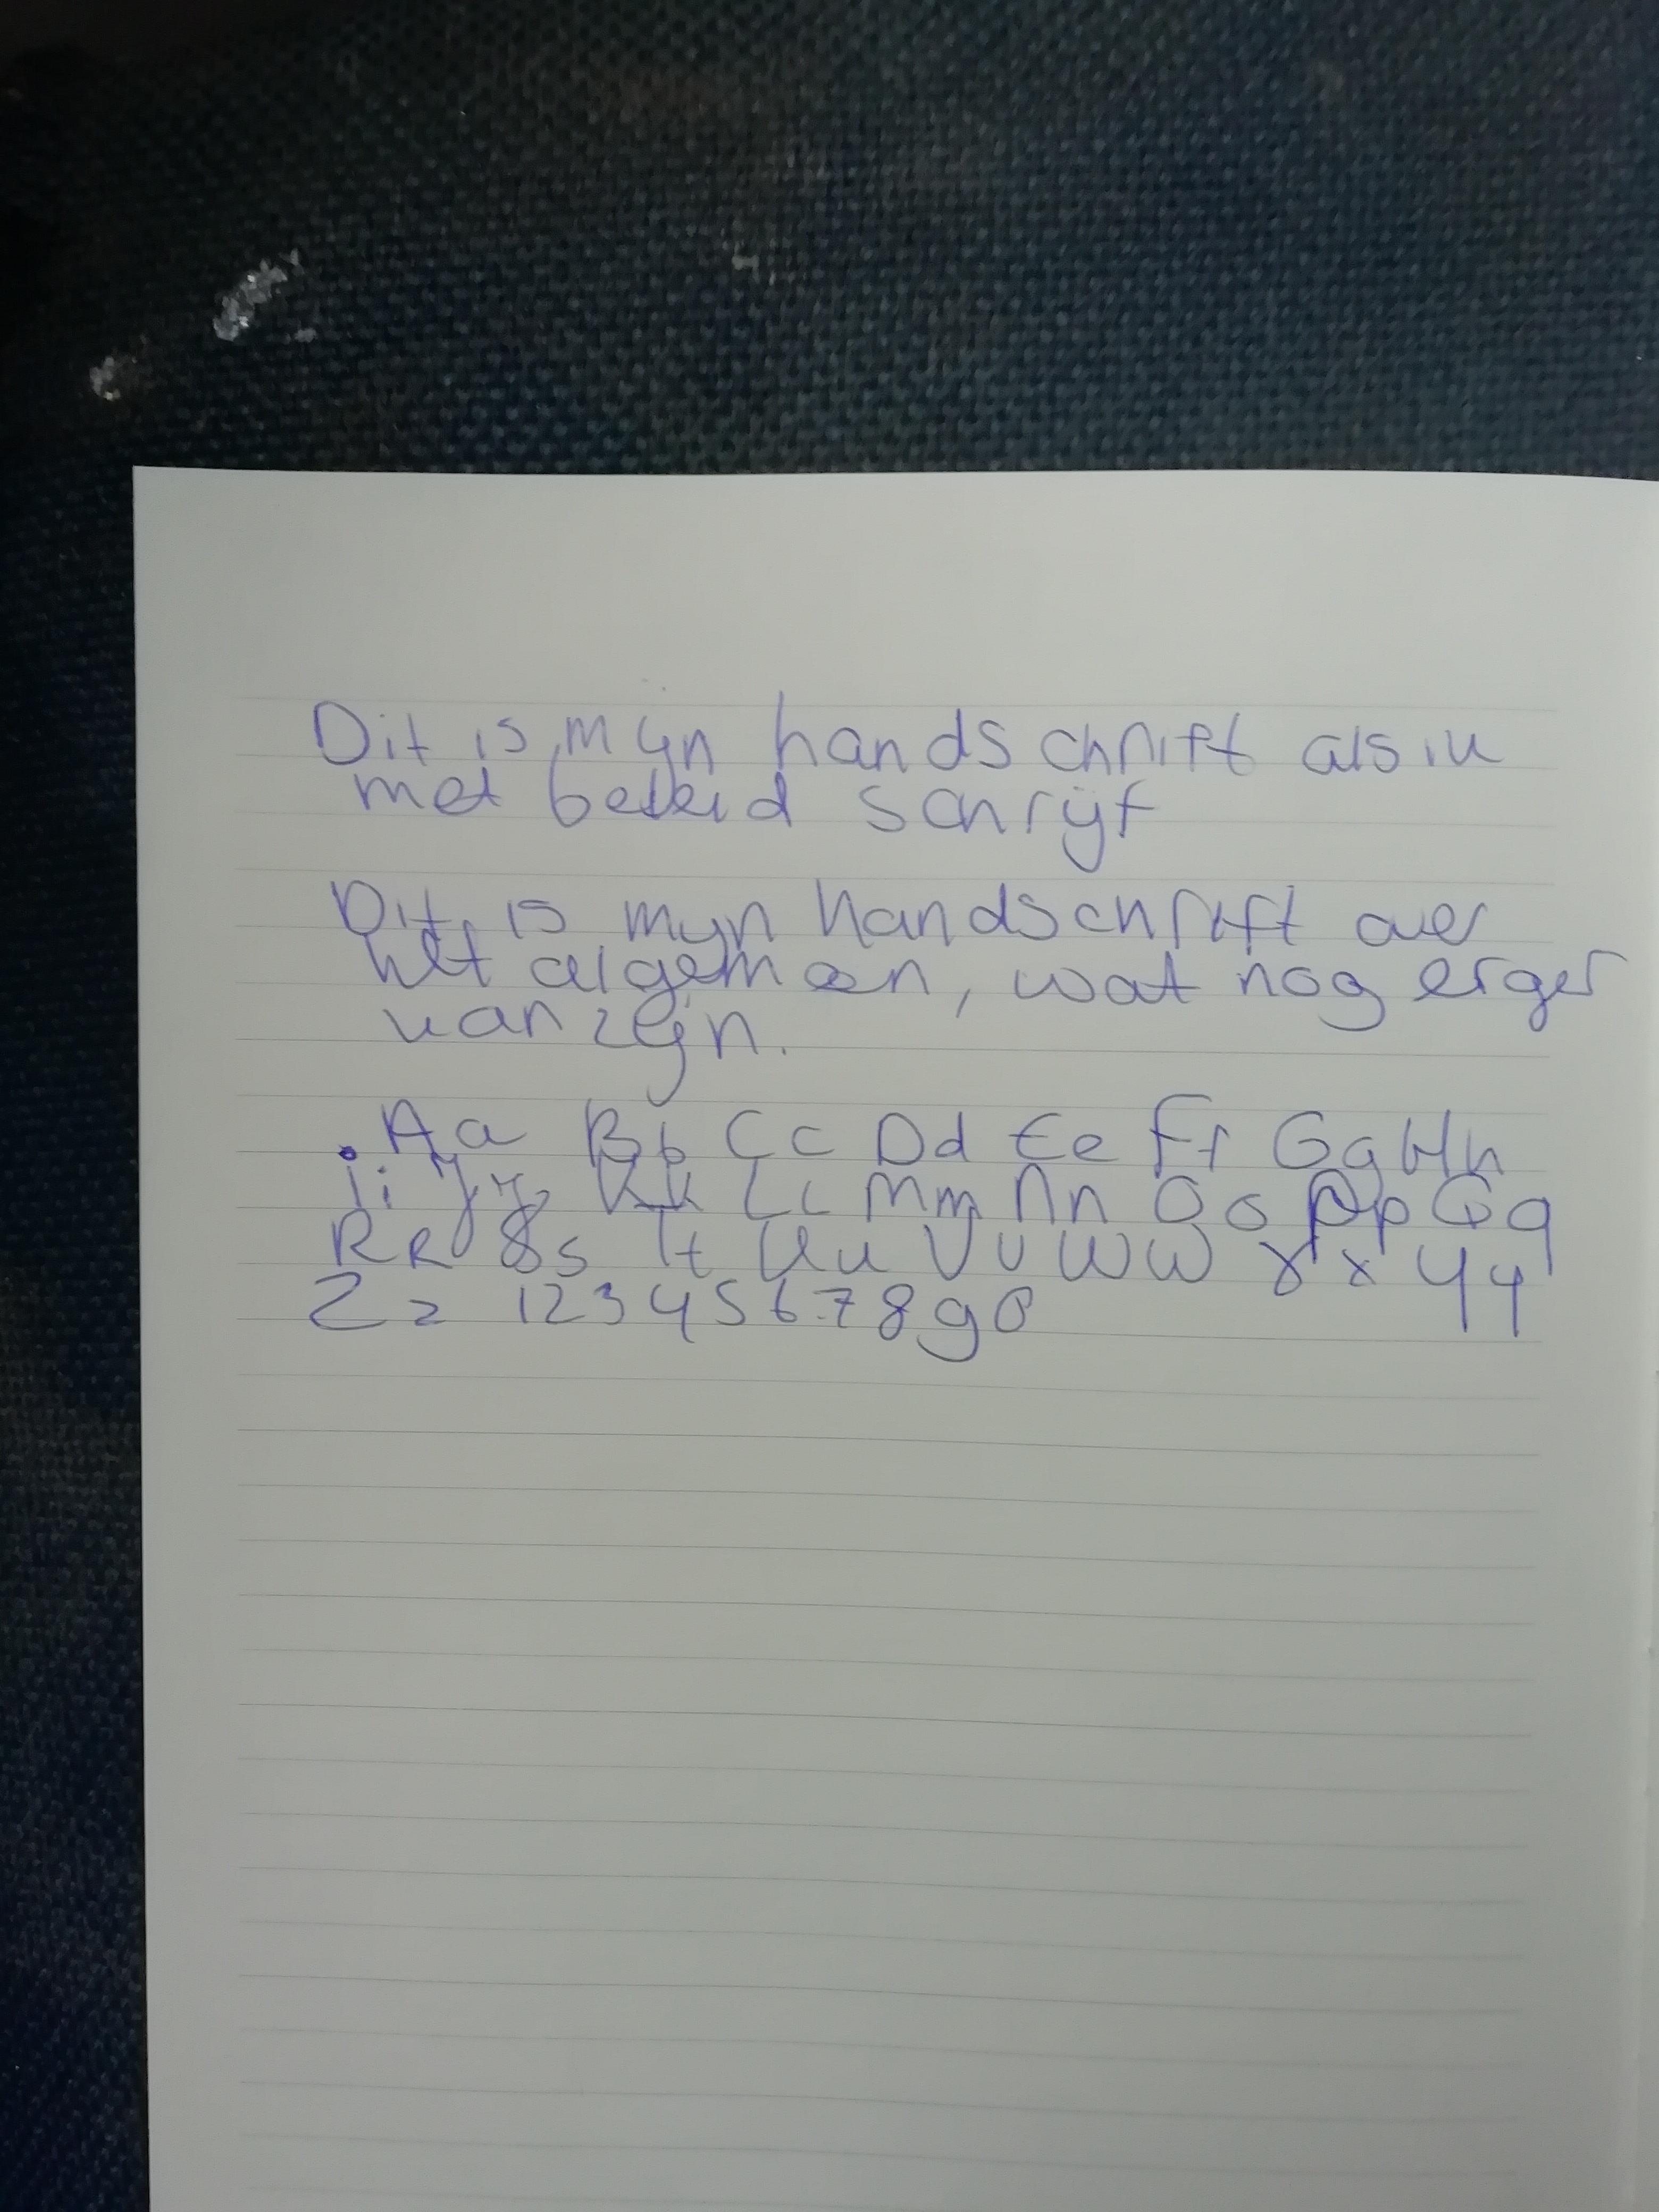 Dit is mijn handschrift als ik
met beleid schrijf
Dit is mijn handschrift over
het algemeen, wat nog erger
kan zijn.
. Aa Bb Cc Dd Ee Ff Gg Hh
Ii Jj Kk Ll Mm Nn Oo Pp Qq
Rr Ss Tt Uu Vv Ww Xx Yy
Zz 1234567890